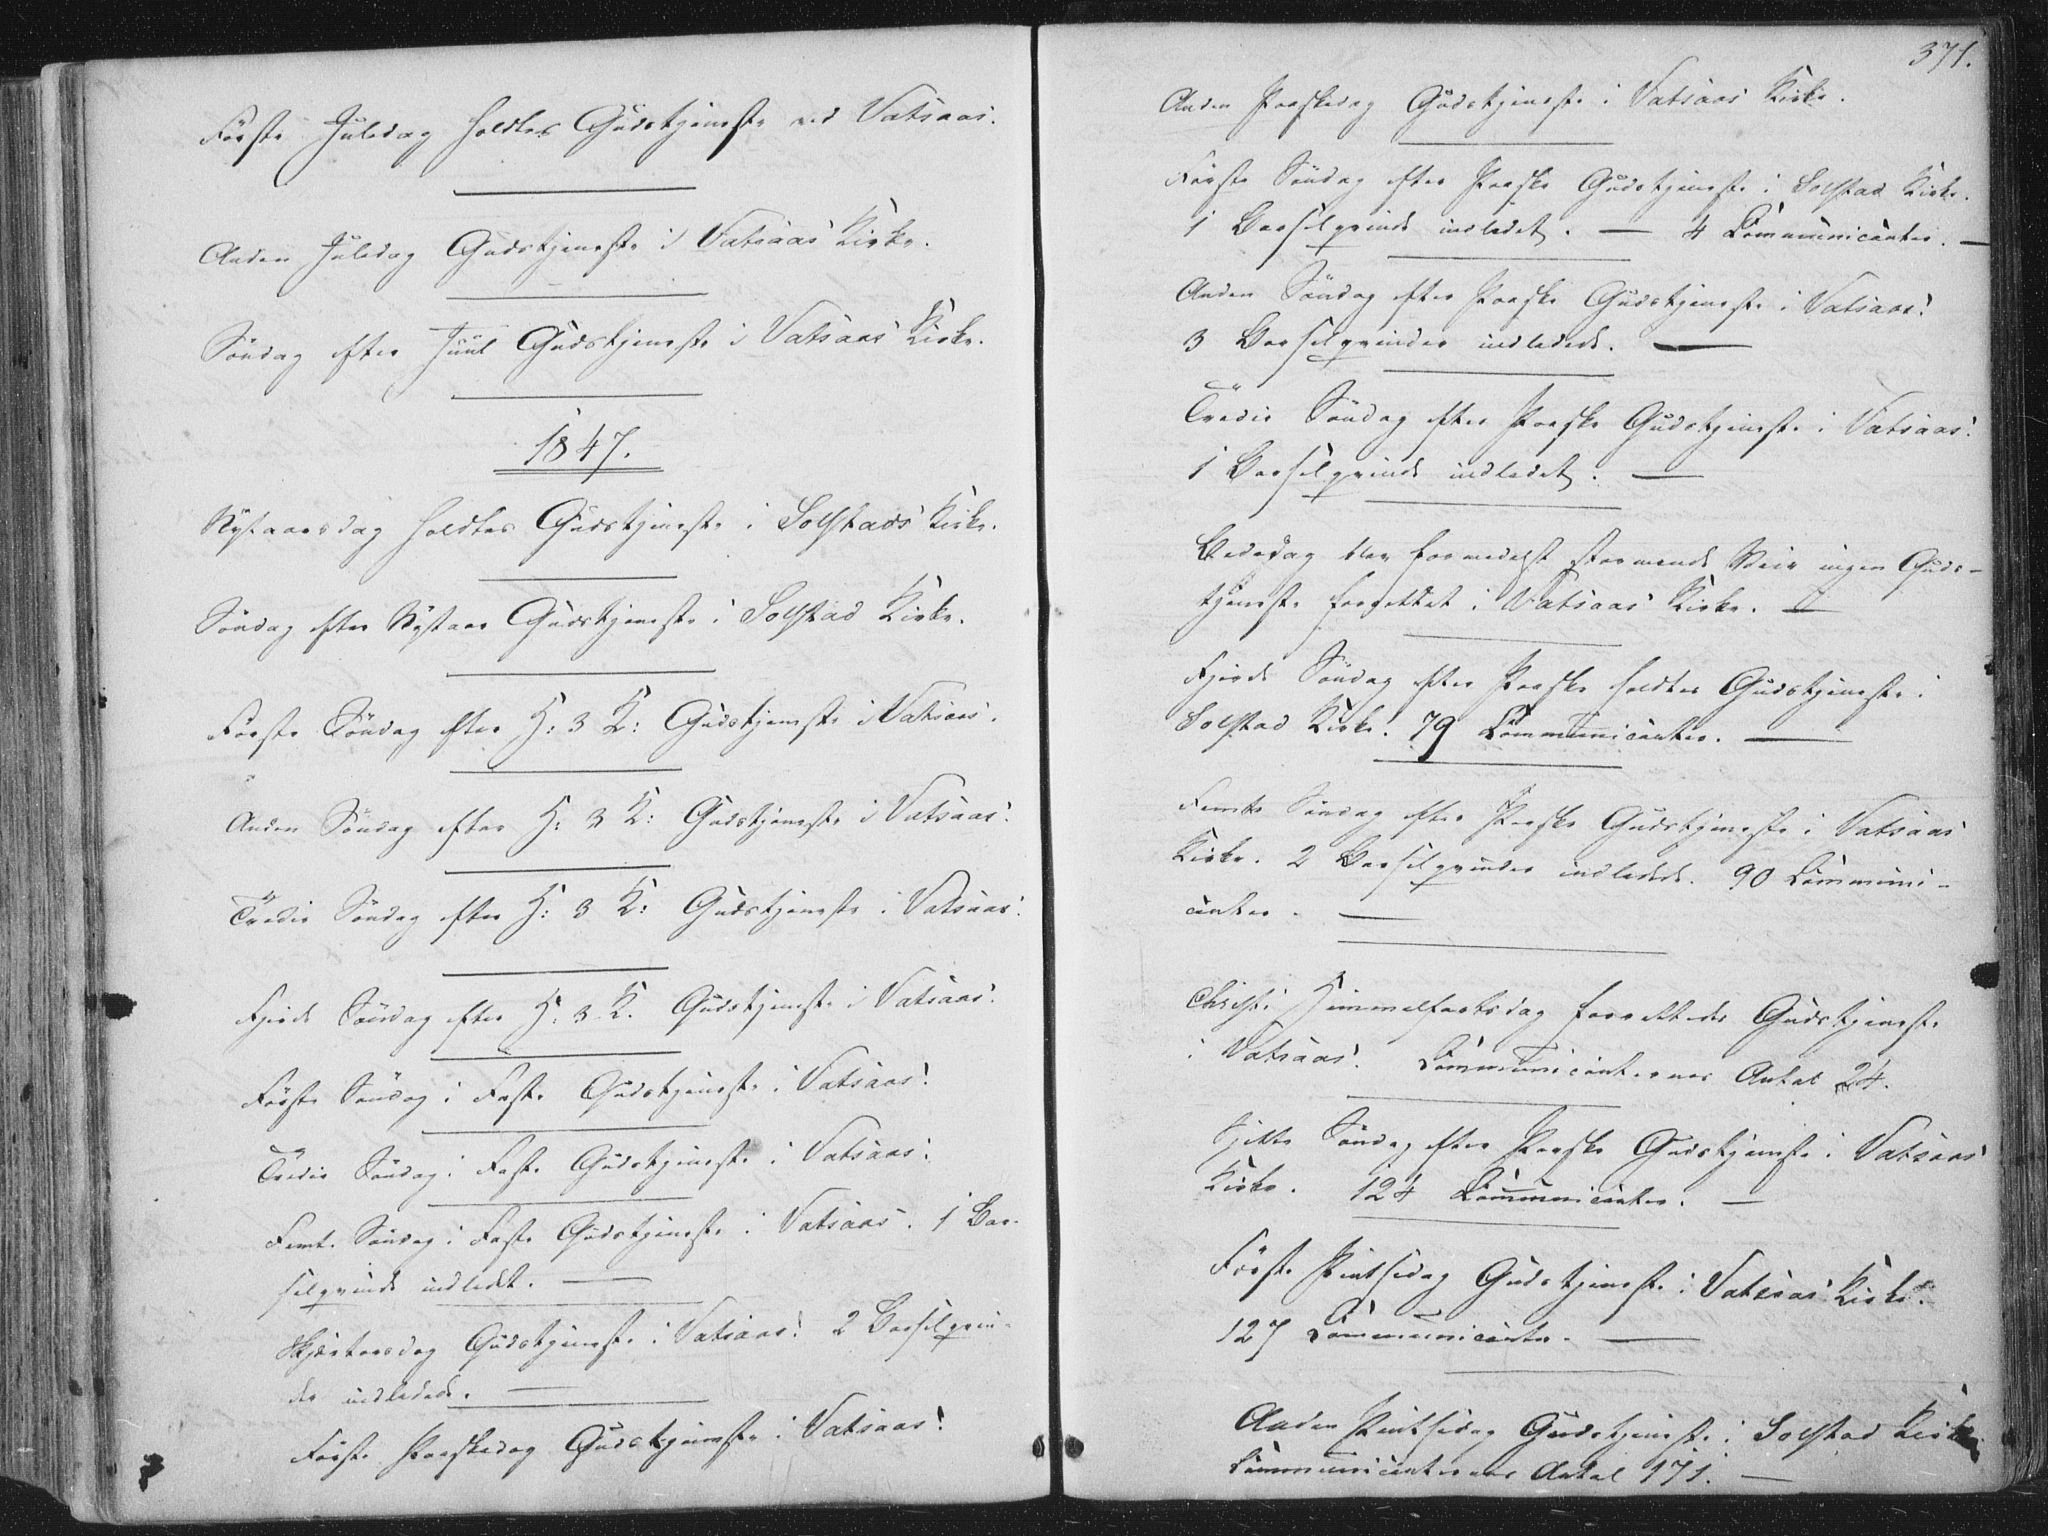 Første Juledag holdtes Gudstjeneste ved Vatsaas.
Anden Juledag Gudstjeneste i Vatsaas Kirke.
Søndag efter Juul Gudstjeneste i Vatsaas Kirke.
1847.
Nytaarsdag holdtes Gudstjeneste i Solstads Kirke.
Søndag efter Nytaar Gudstjeneste i Solstad Kirke.
Første Søndag efter H: 3 K: Gudstjeneste i Vatsaas.
Anden Søndag efter H: 3 K: Gudstjeneste i Vatsaas.
Tredie Søndag efter H: 3 K: Gudstjeneste i Vatsaas.
Fjerde Søndag efter H: 3 K. Gudstjeneste i Vatsaas.
Første Søndag i Faste Gudstjeneste i Vatsaas.
Tredie Søndag i Faste Gudstjeneste i Vatsaas.
Femte Søndag i Faste Gudstjeneste i Vatsaas. 1 Bar-
selqvinde indledet. —
Skjertorsdag Gudstjeneste i Vatsaas. 2 Barselqvin-
der indledede. —
Første Paaskedag Gudstjeneste i Vatsaas.
371.
Anden Paaskedag Gudstjeneste i Vatsaas Kirke.
Første Søndag efter Paaske Gudstjeneste i Solstad Kirke.
1 Barselqvinde indledet. — 4 Communicanter. —
Anden Søndag efter Paaske Gudstjeneste i Vatsaas.
3 Barselqvinder indledede. —
Tredie Søndag efter Paaske Gudstjeneste i Vatsaas.
1 Barselqvinde indledet. —
Bededag blev formedelst stormende Veir ingen Guds-
tjeneste forrettet i Vatsaas Kirke. —
Fjerde Søndag efter Paaske holdtes Gudstjeneste i
Solstad Kirke. 79 Communicanter. —
Femte Søndag efter Paaske Gudstjeneste i Vatsaas
Kirke. 2 Barselqvinder indledede. 90 Communi-
canter. —
Christi Himmelfartsdag forrettedes Gudstjeneste
i Vatsaas. Communicanternes Antal 24.
Sjette Søndag efter Paaske Gudstjeneste i Vatsaas
Kirke. 124 Communicanter. —
Første Pintsedag Gudstjeneste i Vatsaas Kirke.
127 Communicanter. —
Anden Pintsedag Gudstjeneste i Solstad Kirke
Communicanternes Antal 171. —